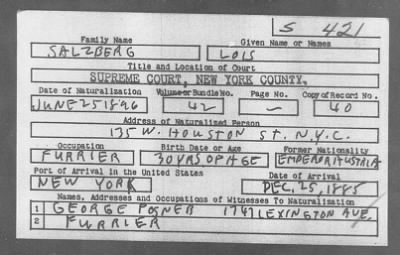 S 421
Family Name Given Name or Names
SALZBERG LOIS
Title and Location of Court
SUPREME COURT, NEW YORK COUNTY.
Date of Naturalization Volume or Bundle No. Page No. Copy of Record No.
JUNE 25 1896 42 — 40
Address of Naturalized Person
135 W. HOUSTON ST. N.Y.C.
Occupation Birth Date or Age Former Nationality
FURRIER 30 YRS OF AGE EMPEROR AUSTRIA
Port of Arrival in the United States Date of Arrival
NEW YORK DEC. 25, 1885
Names, Addresses and Occupations of Witnesses To Naturalization
1 GEORGE POSNER 1747 LEXINGTON AVE.
2 FURRIER